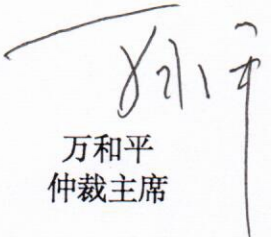 万和平
万和平
仲裁主席